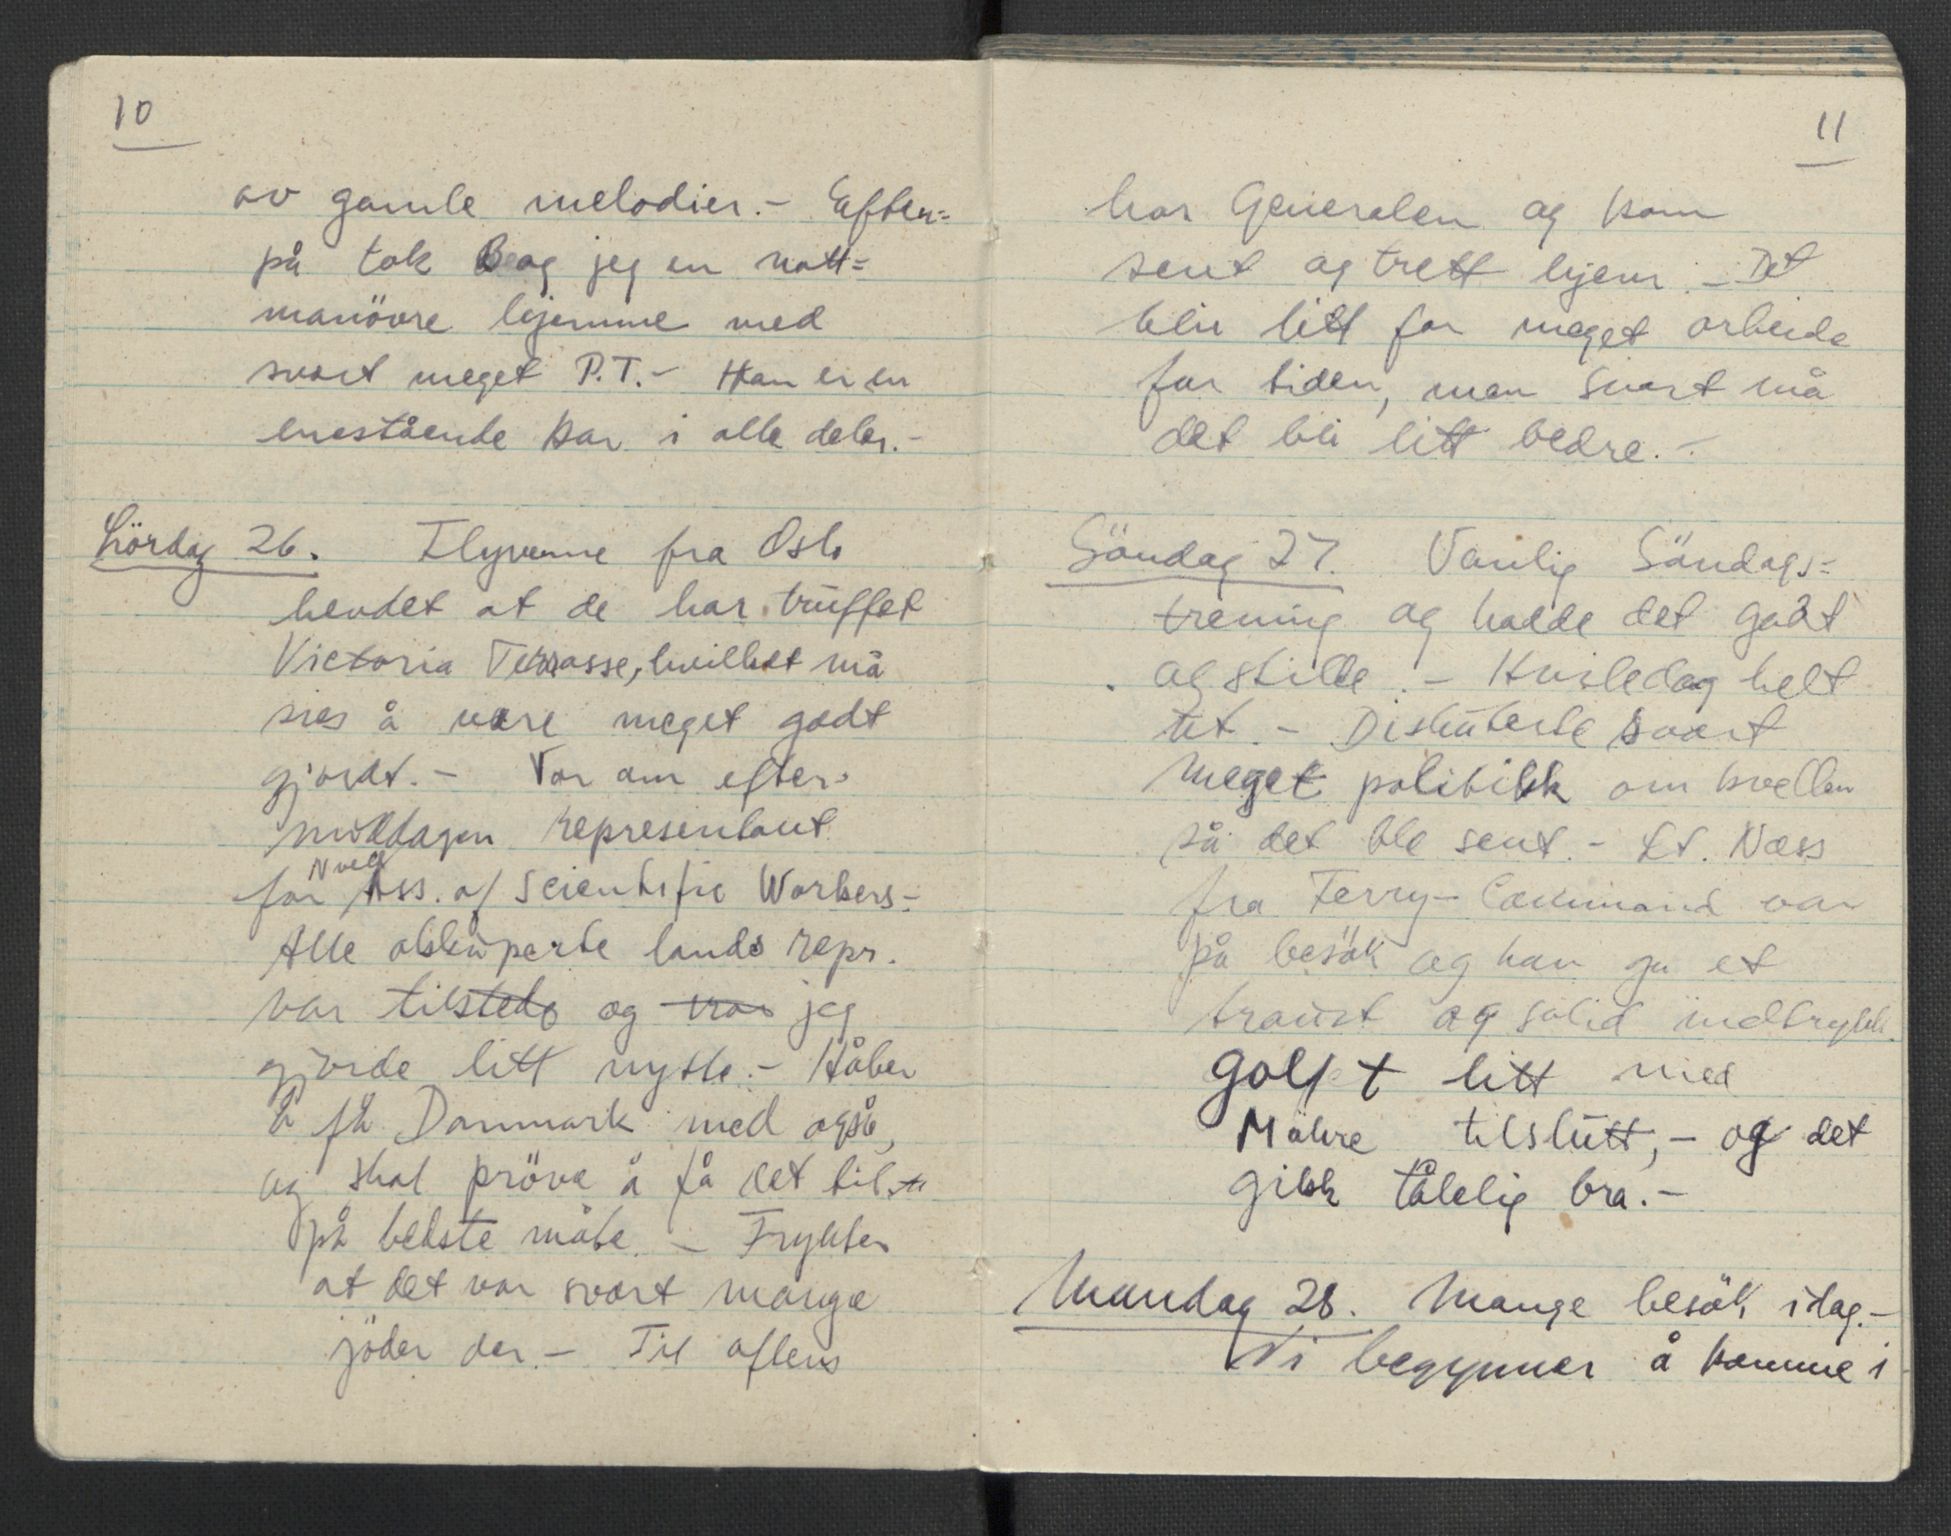 10
av gamle melodier.- Efter=
på tok B og jeg en natt=
manöovre hjemme med
svært meget P.T.- Han er en
enestående kar i alle deler.-
Lördag 26. Flyverne fra Oslo
hevdet at de har truffet
Victoria Terrasse, hvilket må
sies å være meget godt
gjordt.- Var om efter-
middagen representant
for Nveg Ass. of Scientific Workers-
Alle okkuperte lands repr.
var tilstede og var jeg
gjorde litt nytte.- Håber
å få Danmark med også,
og skal pröve å få det til
på bedste måte.- Frykter
at det var svært mange
jöder der.- Til aftens
11
hos Generalen og kom
sent og trett hjem.- Det
blir litt for meget arbeide
for tiden, men snart må
det bli litt bedre.-
Söndag 27. Vanlig Söndags=
trening og hadde det godt
og stille.- Hviledag helt
ut.- Diskuterte svært
meget politikk om kvellen
så det ble sent.- Lt. Næss
fra Ferry-Command var
på besök og han ga et
traust og solid indtrykk.
golfet litt med
Möhre tilslutt,- og det
gikk tålelig bra.-
Mandag 28. Mange besök idag.-
Vi begynner å komme i